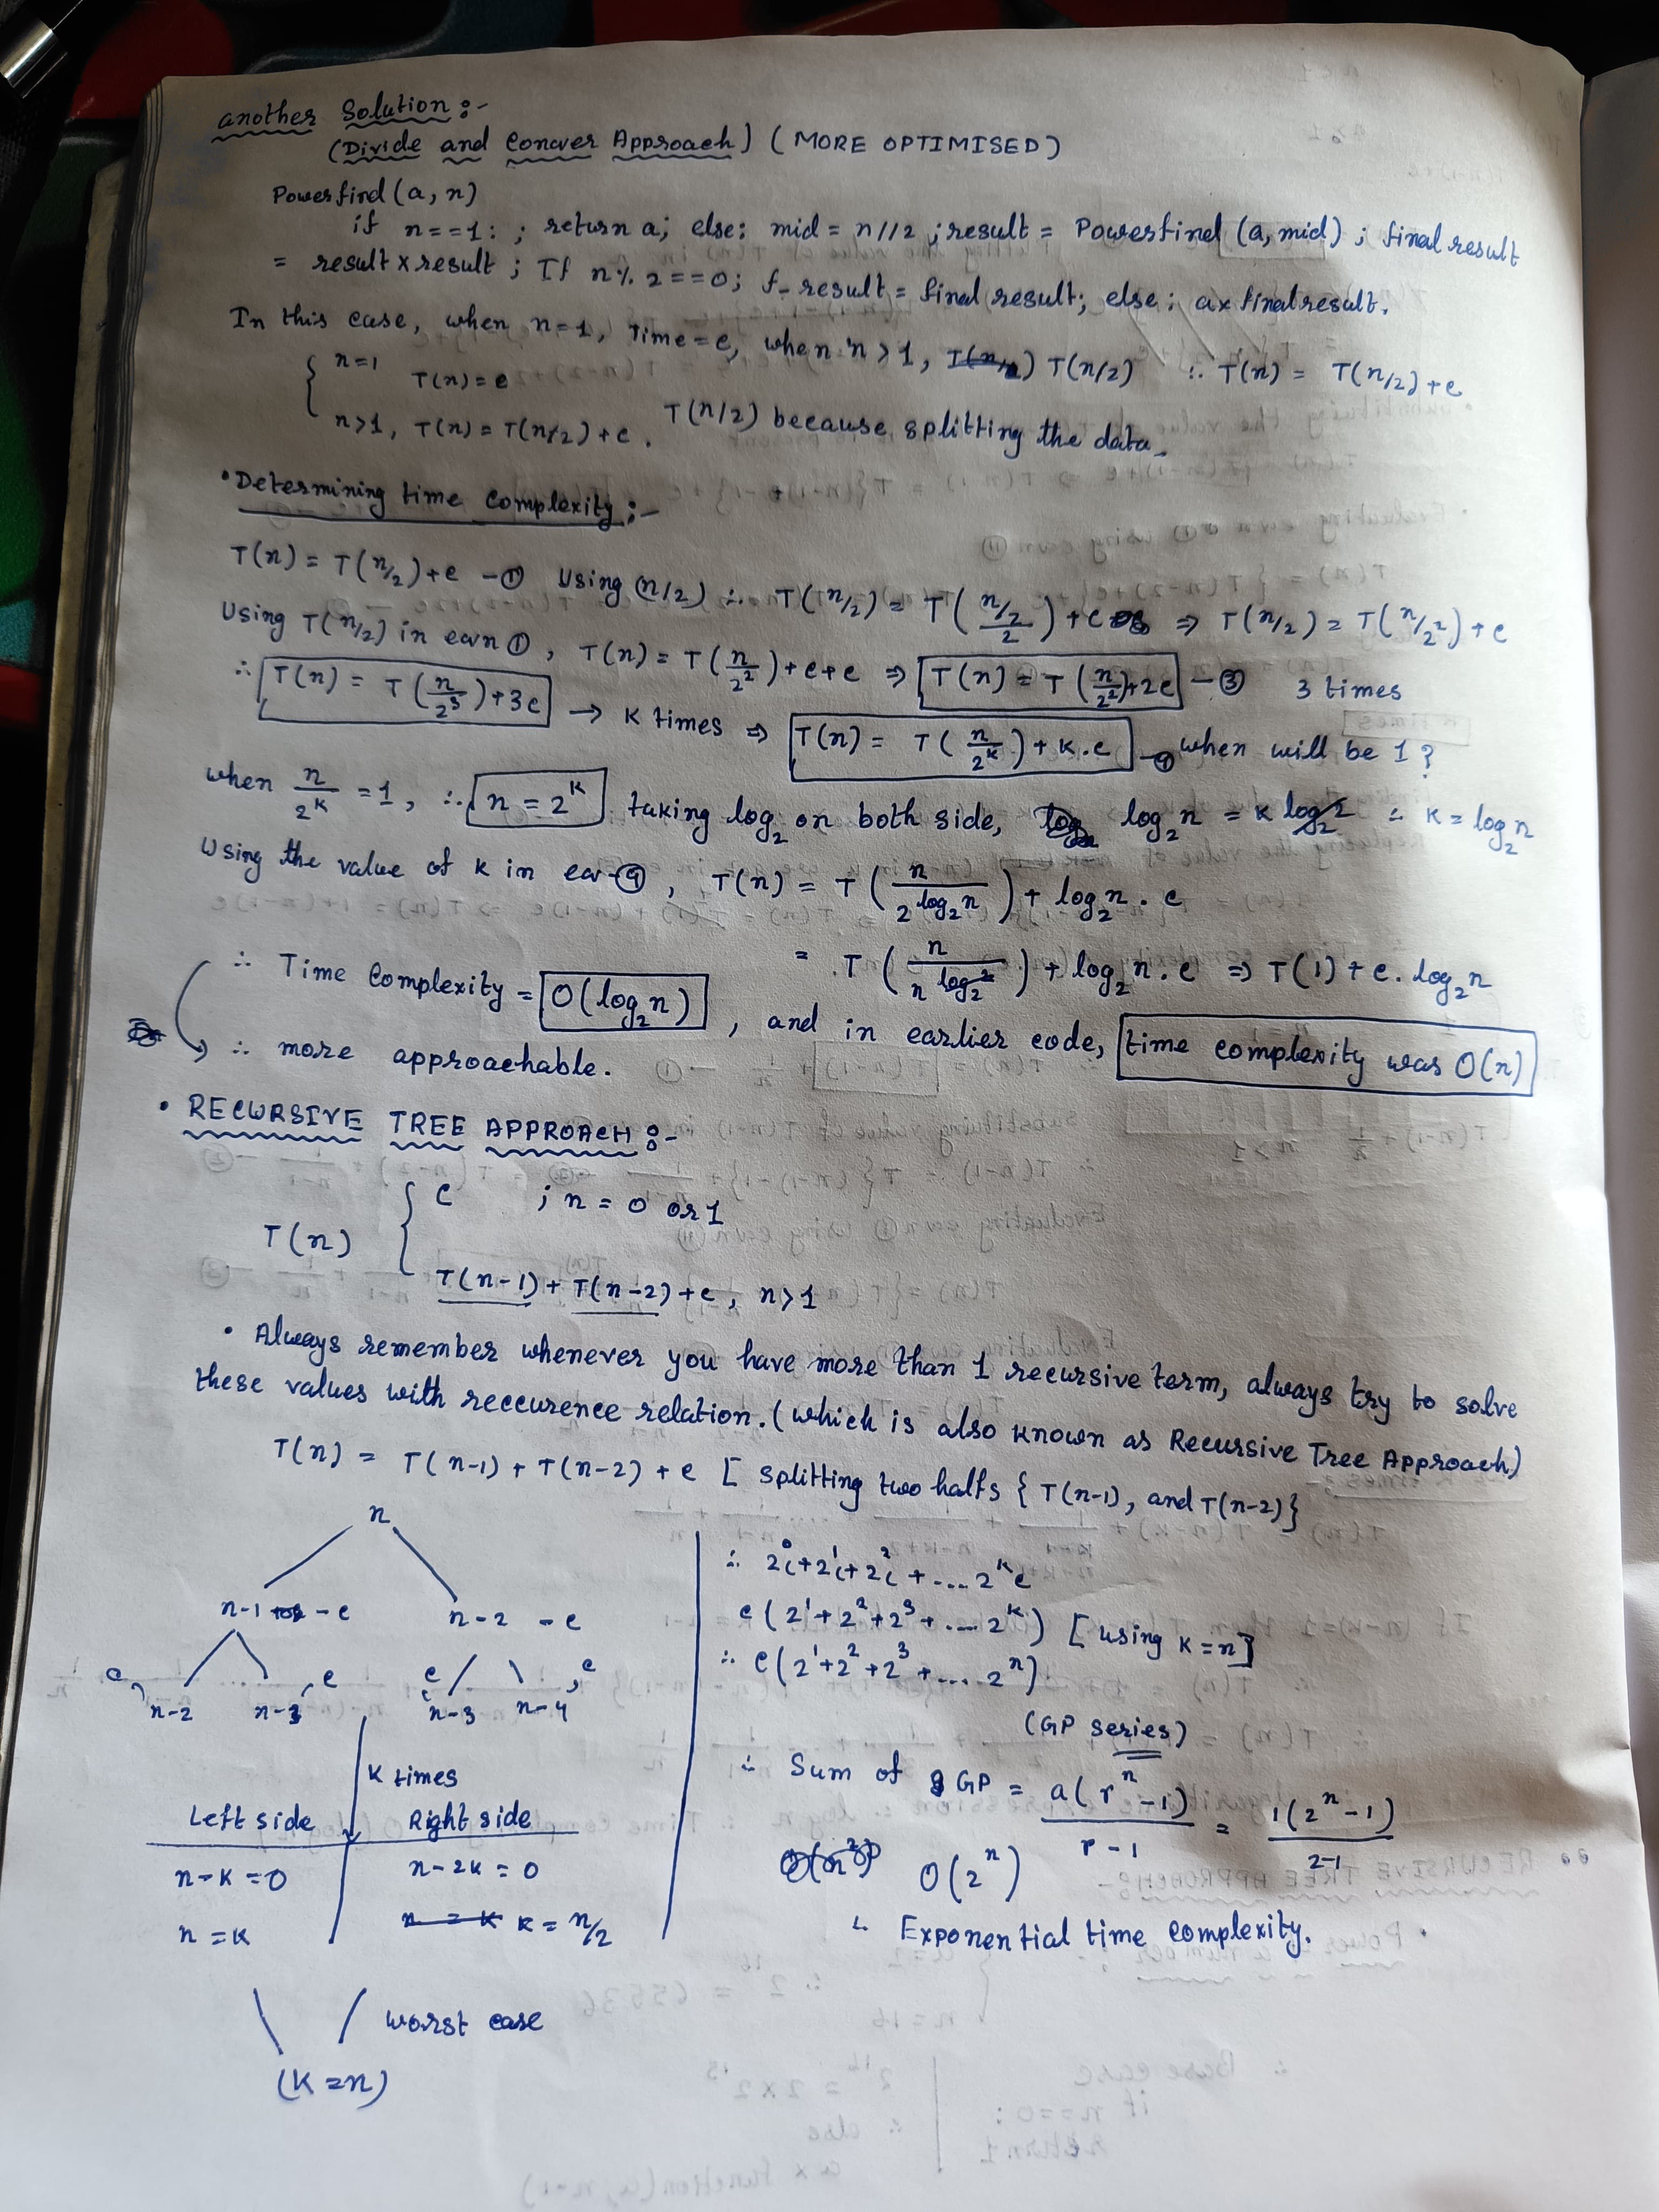 another Solution :-
(Divide and Conqver Approach) (MORE OPTIMISED)
Powerfind (a, n)
if n==1: ; return a; else: mid = n//2 ; result = Powerfind (a, mid) ; final result
= result x result ; If n % 2 == 0; f_result = final result; else ; a x final result.
In this case, when n=1, Time = c, when n > 1, T(n/2) ∴ T(n) = T(n/2) + c
{ n=1 T(n) = c
n>1, T(n) = T(n/2) + c . T(n/2) because splitting the data_
• Determining time complexity :-
T(n) = T(n/2) + c - ① Using (n/2) ∴ T(n/2) = T((n/2)/2) + c ⇒ T(n/2) = T(n/2²) + c
Using T(n/2) in eqvn ①, T(n) = T(n/2²) + c + c ⇒ T(n) = T(n/2²) + 2c - ③ 3 times
∴ T(n) = T(n/2³) + 3c → K times ⇒ T(n) = T(n/2^K) + K.c - ④ when will be 1 ?
when n/2^K = 1, ∴ n = 2^K taking log₂ on both side, log₂n = K log₂2 ∴ K = log₂n
Using the value of K in eqv - ④ , T(n) = T(n/2^log₂n) + log₂n . c
= T(n/n^log₂2) + log₂n . c ⇒ T(1) + c. log₂n
∴ Time Complexity = O(log₂n) , and in earlier code, time complexity was O(n)
∴ more approachable.
• RECURSIVE TREE APPROACH :-
T(n) { C ; n = 0 or 1
T(n-1) + T(n-2) + c, n>1
• Always remember whenever you have more than 1 recursive term, always try to solve
these values with reccurence relation. (which is also known as Recursive Tree Approach)
T(n) = T(n-1) + T(n-2) + c [ splitting two halfs { T(n-1), and T(n-2)}
n
n-1 - c n-2 - c
c c c c
n-2 n-3 n-3 n-4
K times
Left side Right side
n-K = 0 n-2K = 0
n = K K = n/2
worst case
(K = n)
∴ 2⁰c + 2¹c + 2²c + .... 2^K c
c (2¹ + 2² + 2³ + .... 2^K) [using K = n]
∴ c (2¹ + 2² + 2³ + .... 2ⁿ)
(GP series)
∴ Sum of GP = a(rⁿ - 1)/r - 1 = 1(2ⁿ - 1)/2-1
O(2ⁿ)
↳ Exponential time complexity.